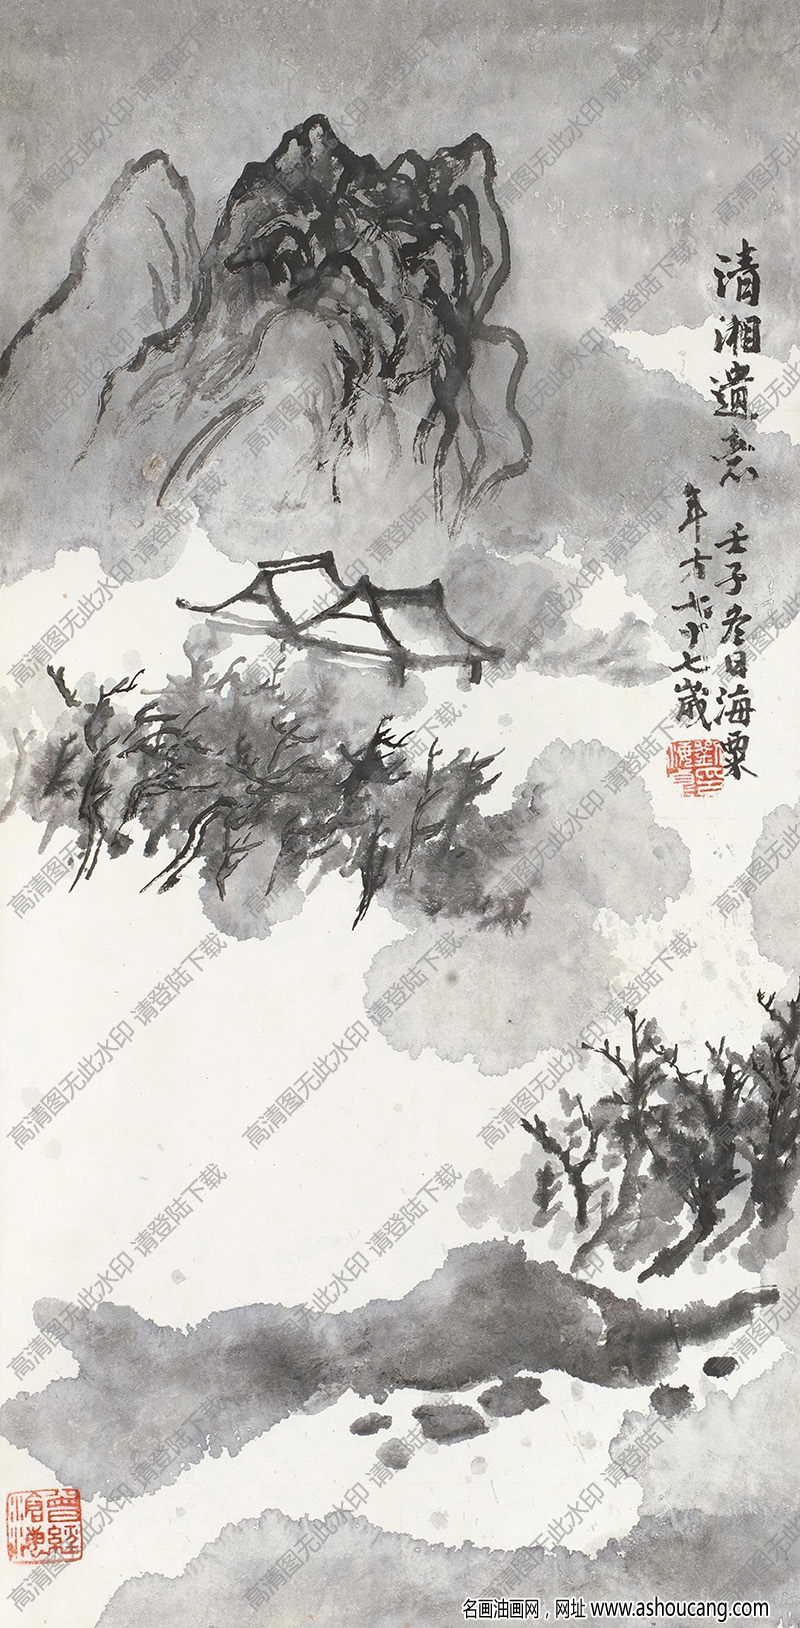 清湘遺意
壬子冬日海粟
年方七十七歲
劉海粟印
曾經滄海
高清图无此水印 请登陆下载
名画油画网，网址 www.ashoucang.com